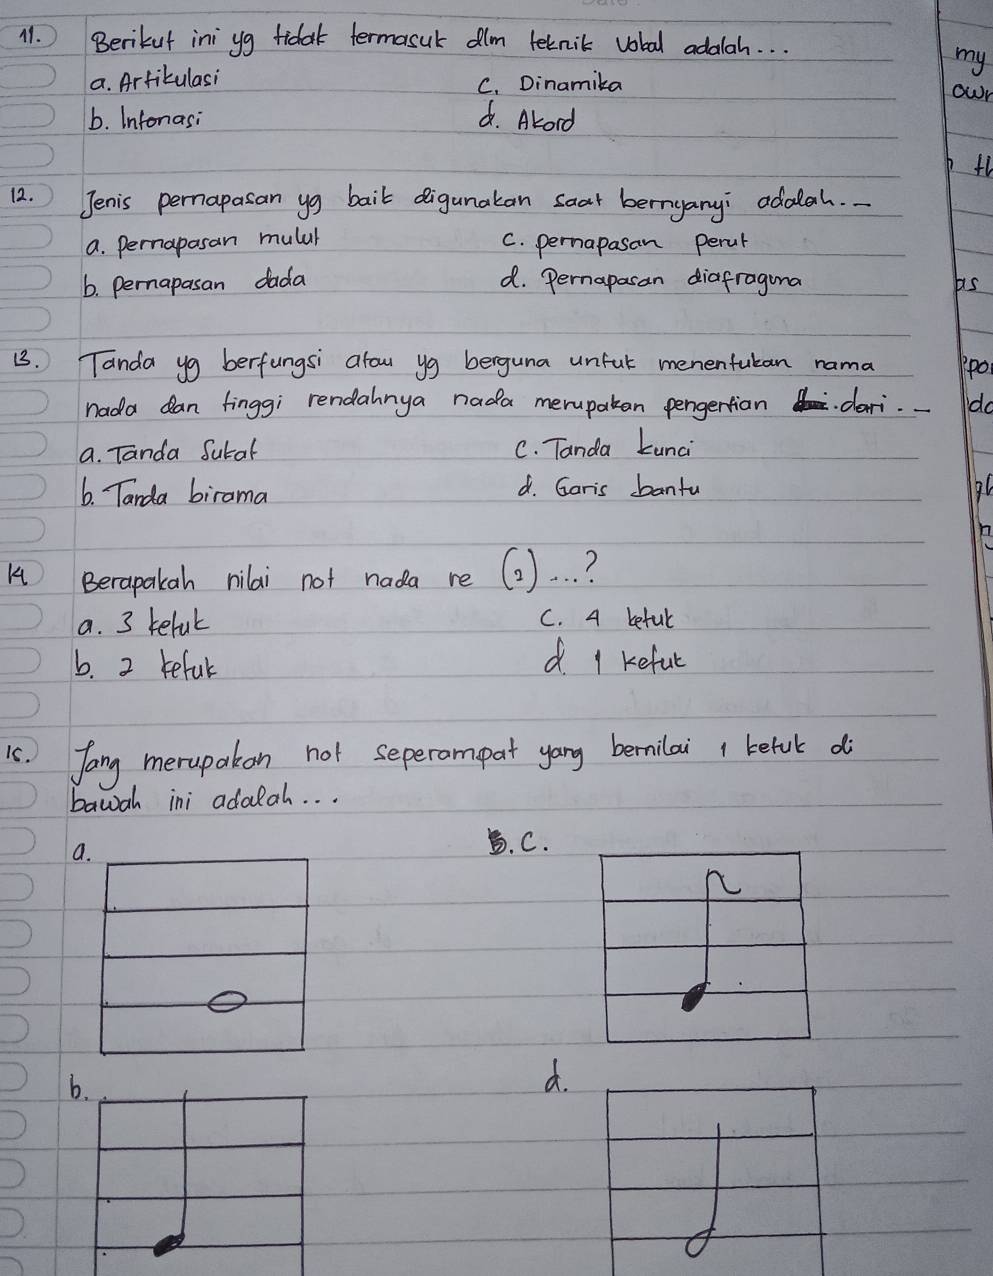 11. Berikut ini yg tidak termasuk dlm teknik vokal adalah...
a. Artikulasi
c. Dinamika
b. Intonasi
d. Akord
12. Jenis pernapasan yg baik digunakan saat bernyanyi adalah...
a. pernapasan mulut
c. pernapasan perut
b. pernapasan dada
d. pernapasan diafragma
13. Tanda yg berfungsi atau yg berguna untuk menentukan nama
nada dan tinggi rendahnya nada merupakan pengertian dari...
a. Tanda Sukat
c. Tanda kunci
b. Tanda birama
d. Garis bantu
14 Berapakah nilai not nada re (2)...?
a. 3 ketuk
c. 4 ketuk
b. 2 ketuk
d. 1 ketuk
15. Yang merupakan not seperampat yang bernilai 1 ketuk di
bawah ini adalah...
a.
c.
b.
d.
my
own